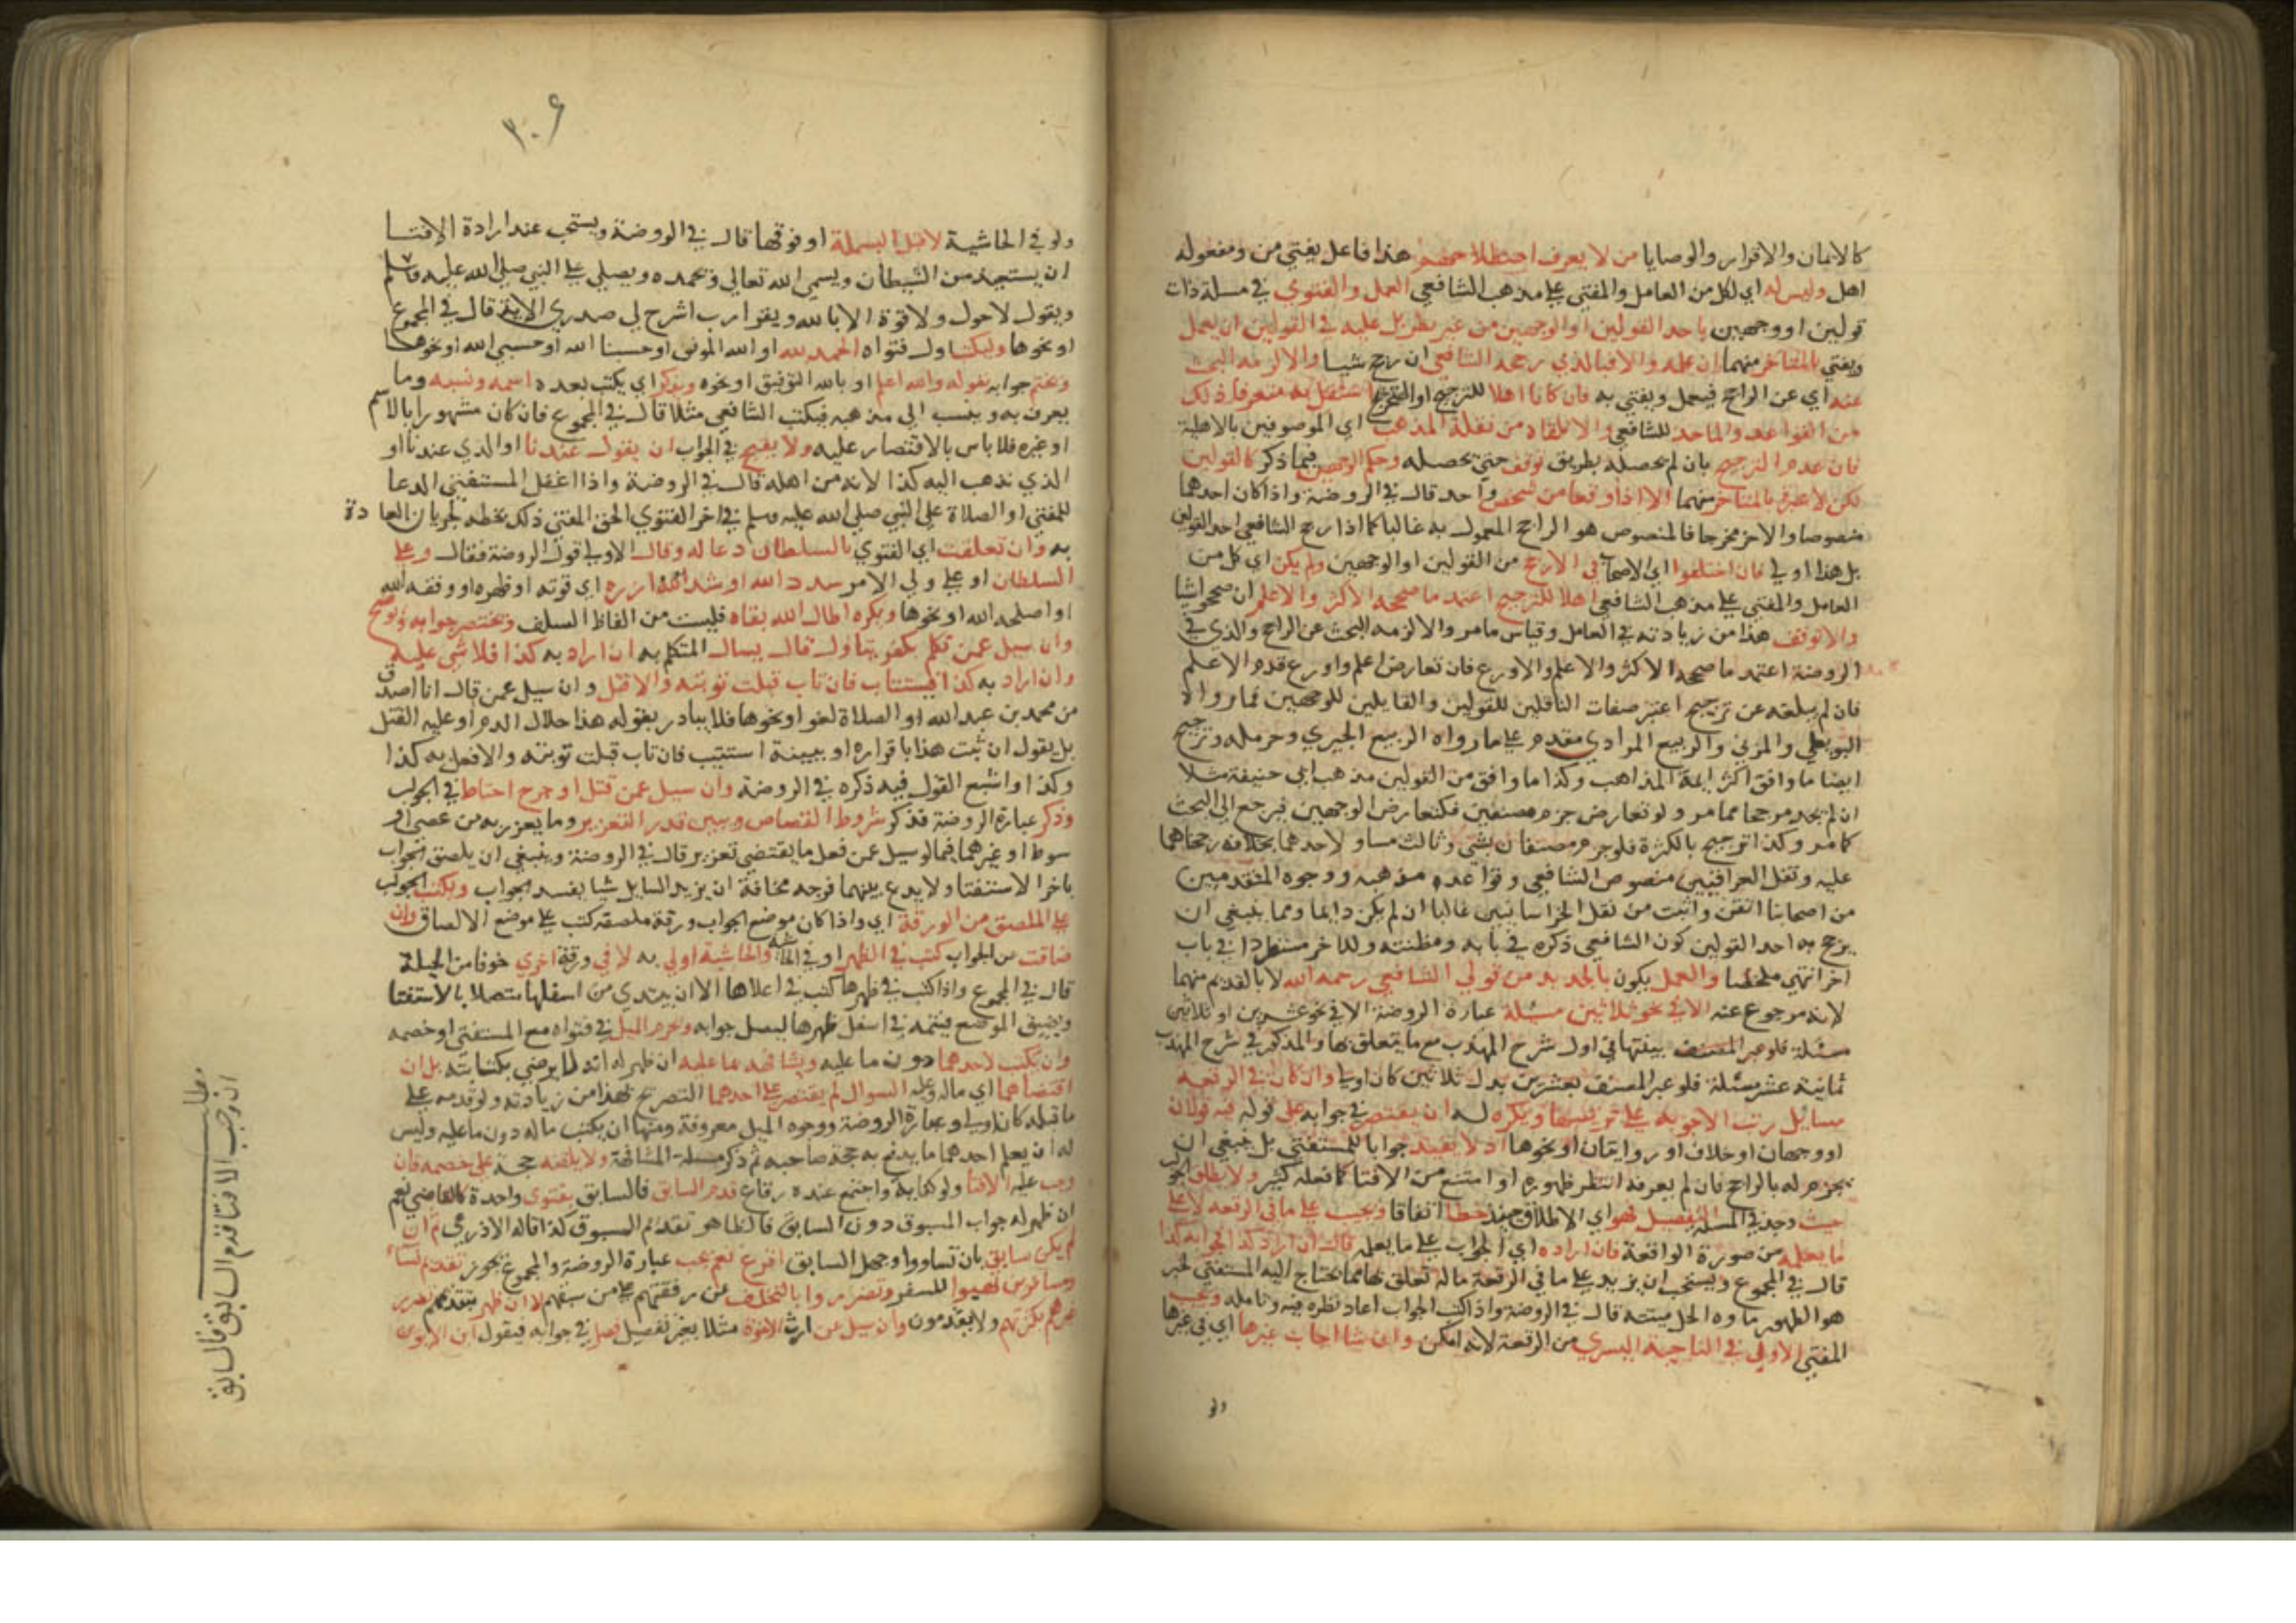 كالايمان والاقرار والوصايا من لا يعرف اصطلاحهم هذا فاعل يفتي من ومفعوله
اهل وليس له اي لكل من العامل والمفتي علي مذهب الشافعي العمل والفتوي في مسلة ذات
قولين او وجهين باحد القولين او الوجهين من غير نظر بل عليه في القولين ان يعمل
ويفتي بالمتاخر منهما ان علمه والا فبالذي رجحه الشافعي ان رجح شيا والا لزمه البحث
عنه اي عن الراجح فيعمل ويفتي به فان كانا اهلا للترجيح او التخريج اشتغل به متعرفا ذلك
من القواعد والماخذ للشافعي والا تلقاه من نقلة المذهب اي الموصوفين بالاهلية
فان عدم الترجيح بان لم يحصله بطريق توقف حتي يحصله وحكم الوجهين فيما ذكر كالقولين
لكن لا عبرة بالمتاخر منهما الا اذا وقعا من شخص واحد قال في الروضة واذا كان احدهما
منصوصا والاخر مخرجا فالمنصوص هو الراجح المعمول به غالبا كما اذا رجح الشافعي احد القولين
بل هذا اولي فان اختلفوا اي الاصحاب في الارجح من القولين او الوجهين ولم يكن اي كل من
العامل والمفتي علي مذهب الشافعي اهلا للترجيح اعتمد ما صححه الاكثر والاعلم ان صححوا شيا
والا توقف هذا من زيادته في العامل وقياس ما مر والا لزمه البحث عن الراجح والذي في
الروضة اعتمد ما صححه الاكثر والاعلم والاورع فان تعارض اعلم واورع قدم الاعلم
فان لم يبلغه عن ترجيح اعتبر صفات الناقلين للقولين والقايلين للوجهين فما رواه
البويطي والمزني والربيع المرادي مقدم علي ما رواه الربيع الجيزي وحرملة وترجيح
ايضا ما وافق اكثر ايمة المذاهب وكذا ما وافق من القولين مذهب ابي حنيفة مثلا
ان لم يجد مرجحا مما مر ولو تعارض جزم مصنفين فكتعارض الوجهين فيرجع الي البحث
كما مر وكذا ترجيح بالكثرة فلو جزم مصنفان بشي وثالث مساو لاحدهما بخلافه رجحناهما
عليه ونقل العراقيين منصوص الشافعي وقواعد مذهبه ووجوه المتقدمين
من اصحابنا اتقن واثبت من نقل الخراسانيين غالبا ان لم يكن دايما ومما ينبغي ان
يرجح به احد القولين كون الشافعي ذكره في بابه ومظنته والاخر مستطردا في باب
اخر انتهي ملخصا والعمل يكون بالجديد من قولي الشافعي رحمه الله لا بالقديم منهما
لانه مرجوع عنه الا في نحو ثلاثين مسئلة عبارة الروضة الا في نحو عشرين او ثلاثين
مسئلة قلو عبر المصنف بينتها في اول شرح المهذب مع ما يتعلق بها والمذكور في شرح المهذب
ثمانية عشر مسئلة فلو عبر المصنف بعشرين بدل ثلاثين كان اولي وان كان في الرقعة
مسايل رتب الاجوبة علي ترتيبها ويكره له ان يقتصر في جوابه علي قوله فيه قولان
او وجهان او خلاف او روايتان او نحوها اذ لا يفيد جوابا للمستفتي بل ينبغي ان
يجزم له بالراجح فان لم يعرفه انتظر ظهوره او امتنع من الافتا كما فعله كثير ولا يطلق الجواب
حيث وجد في المسلة التفصيل فهو اي الاطلاق حينئذ خطا اتفاقا ويجيب علي ما في الرقعة لا علي
ما يعلمه من صورة الواقعة فان اراده اي الجواب علي ما يعلمه قال ان اراد كذا فجوابه كذا
قال في المجموع ويستحب ان يزيد علي ما في الرقعة ما له تعلق بها مما يحتاج اليه المستفتي لخبر
هو الطهور ماوه الحل ميتته قال في الروضة واذا كتب الجواب اعاد نظره فيه وتامله ويكتب
المفتي الاول في الناحية اليسري من الرقعة لانه امكن وان شا اجاب غيرها اي في غيرها
ولو
٣٠٦
ولو في الحاشية لا قبل البسملة او فوقها قال في الروضة ويستحب عند ارادة الافتا
ان يستعيذ من الشيطان ويسمي الله تعالي ويحمده ويصلي علي النبي صلي الله عليه وسلم
ويقول لا حول ولا قوة الا بالله ويقرا رب اشرح لي صدري الاية قال في المجموع
او نحوها وليكتب اول فتواه الحمد لله او الله الموفق او حسبنا الله او حسبي الله او نحوها
ويختم جوابه بقوله والله اعلم او بالله التوفيق او نحوه ويذكر اي يكتب بعده اسمه ونسبه وما
يعرف به وينسب الي مذهبه فيكتب الشافعي مثلا قال في المجموع فان كان مشهورا بالاسم
او غيره فلا باس بالاقتصار عليه ولا يقبح في الجواب ان يقول عندنا او الذي عندنا او
الذي نذهب اليه كذا لانه من اهله قال في الروضة واذا اغفل المستفتي الدعا
للمفتي او الصلاة علي النبي صلي الله عليه وسلم في اخر الفتوي الحق المفتي ذلك بخطه لجريان العادة
به وان تعلقت اي الفتوي بالسلطان دعا له وقال الاولي قول الروضة فقال وعلي
السلطان او علي ولي الامر سدد الله او شد الله ازره اي قوته او ظهره او وفقه الله
او اصلحه الله او نحوها ويكره اطال الله بقاه فليست من الفاظ السلف ويختصر جوابه ويوضح
وان سيل عمن تكلم بكفر يتاول قال يسال المتكلم به ان اراد به كذا فلا شي عليه
وان اراد به كذا فيستتاب فان تاب قبلت توبته والا قتل وان سيل عمن قال انا اصدق
من محمد بن عبد الله او الصلاة لغو او نحوها فلا يبادر بقوله هذا حلال الدم او عليه القتل
بل يقول ان ثبت هذا باقراره او ببينة استتيب فان تاب قبلت توبته والا فعل به كذا
وكذا واشبع القول فيه ذكره في الروضة وان سيل عمن قتل او جرح احتاط في الجواب
وذكر عبارة الروضة فذكر شروط القصاص ويبين قدر التعزير وما يعزر به من عصي او
سوط او غيرهما فيما لو سيل عمن فعل ما يقتضي تعزير قال في الروضة وينبغي ان يلصق الجواب
باخر الاستفتا ولا يدع بينهما فرجه مخافة ان يزيد السايل شيا يفسد الجواب ويكتب الجواب
علي الملصق من الورقة اي واذا كان موضع الجواب ورقة ملصقة كتب علي موضع الالصاق وان
ضاقت من الجواب كتب في الظهر او في الحاشية والحاشية اولي به لا في ورقة اخري خوفا من الحيلة
قال في المجموع واذا كتب في ظهرها كتب في اعلاها الا ان يبتدي من اسفلها متصلا بالاستفتا
ويضيق الموضع فيتمه في اسفل ظهرها ليصل جوابه ويحرم الميل في فتواه مع المستفتي او خصمه
وان يكتب لاحدهما دون ما عليه ويشافهه بما عليه ان ظهر له انه لا يرضي بكتابته بل ان
اقتضاهما اي ما له وعليه السوال لم يقتصر علي احدهما التصريح بهذا من زيادته ولو قدمه علي
ما قبله كان اولي وعبارة الروضة ووجوه الميل معروفة ومنها ان يكتب ما له دون ما عليه وليس
له ان يعلم احدهما ما يدفع به حجة صاحبه ثم ذكر مسلة المشافهة ولا يلقنه حجة علي خصمه فان
وجب عليه الافتا ولو كفاية واجتمع عنده رقاع قدم السابق فالسابق بفتوي واحدة كالقاضي نعم
ان ظهر له جواب المسبوق دون السابق فالظاهر تقديم المسبوق كذا قاله الاذرعي ثم ان
لم يكن سابق بان تساووا وجهل السابق اقرع نعم يجب عبارة الروضة والمجموع يجوز تقديم نساء
ومسافرين تهييوا للسفر وتضرروا بالتخلف عن رفقتهم علي من سبقهم لا ان ظهر بتقديمهم تضرر
غيرهم بكثرتهم ولا يقدمون وان سيل عن ارث الاخوة مثلا بغير تفصيل فصل في جوابه فيقول ابن الابوين
مطلب
ان وجب الافتا قدم السابق فالسابق